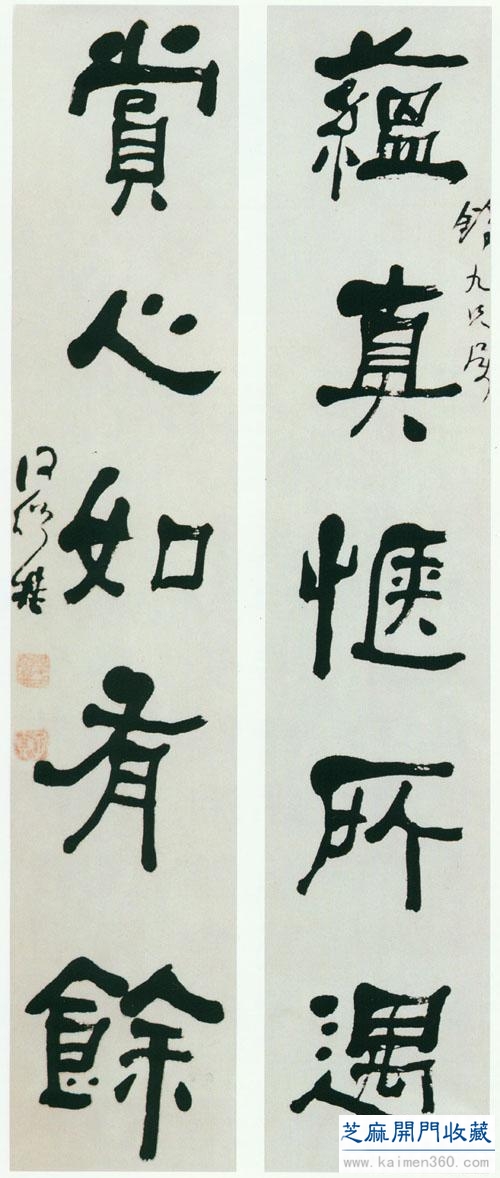 九兄屬
蘊真愜所遇
賞心如有餘
何紹基
芝麻開門收藏
www.kaimen360.com